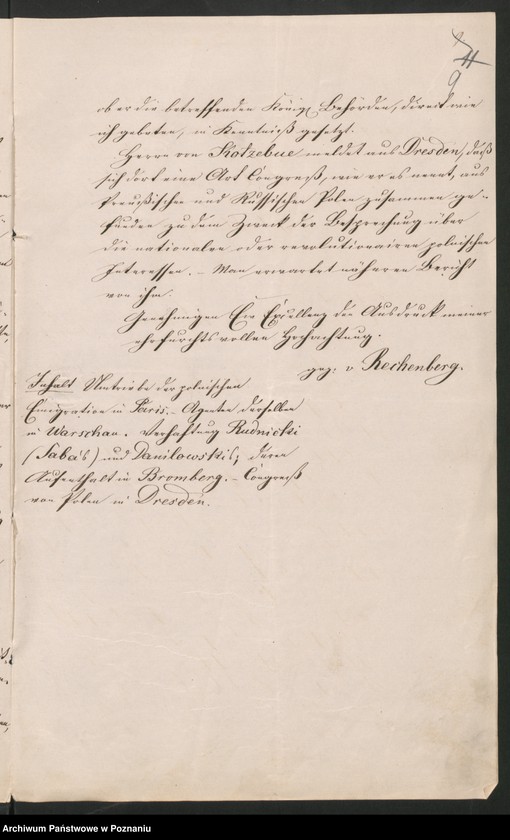 11
9
ob er die betreffenden Königl. Behörden, direct wie
ich gebeten, in Kenntniß gesetzt.
Herr von Kotzebue meldet aus Dresden, daß
sich dort eine Art Congreß, wie er es nennt, aus
Preußischen und Russischen Polen zusammen ge-
funden zu dem Zweck der Besprechung über
die nationalen oder revolutionairen polnischen
Interessen. – Man erwartet näheren Bericht
von ihm.
Genehmigen Ew Excellenz den Ausdruck meiner
ehrfurchtsvollen Hochachtung.
gez. v Rechenberg.
Inhalt Umtriebe der polnischen
Emigration in Paris. – Agenten derselben
in Warschau. Verhaftung Rudnicki
(Saba's) und Danilowski's; deren
Aufenthalt in Bromberg. – Congreß
von Polen in Dresden.
Archiwum Państwowe w Poznaniu